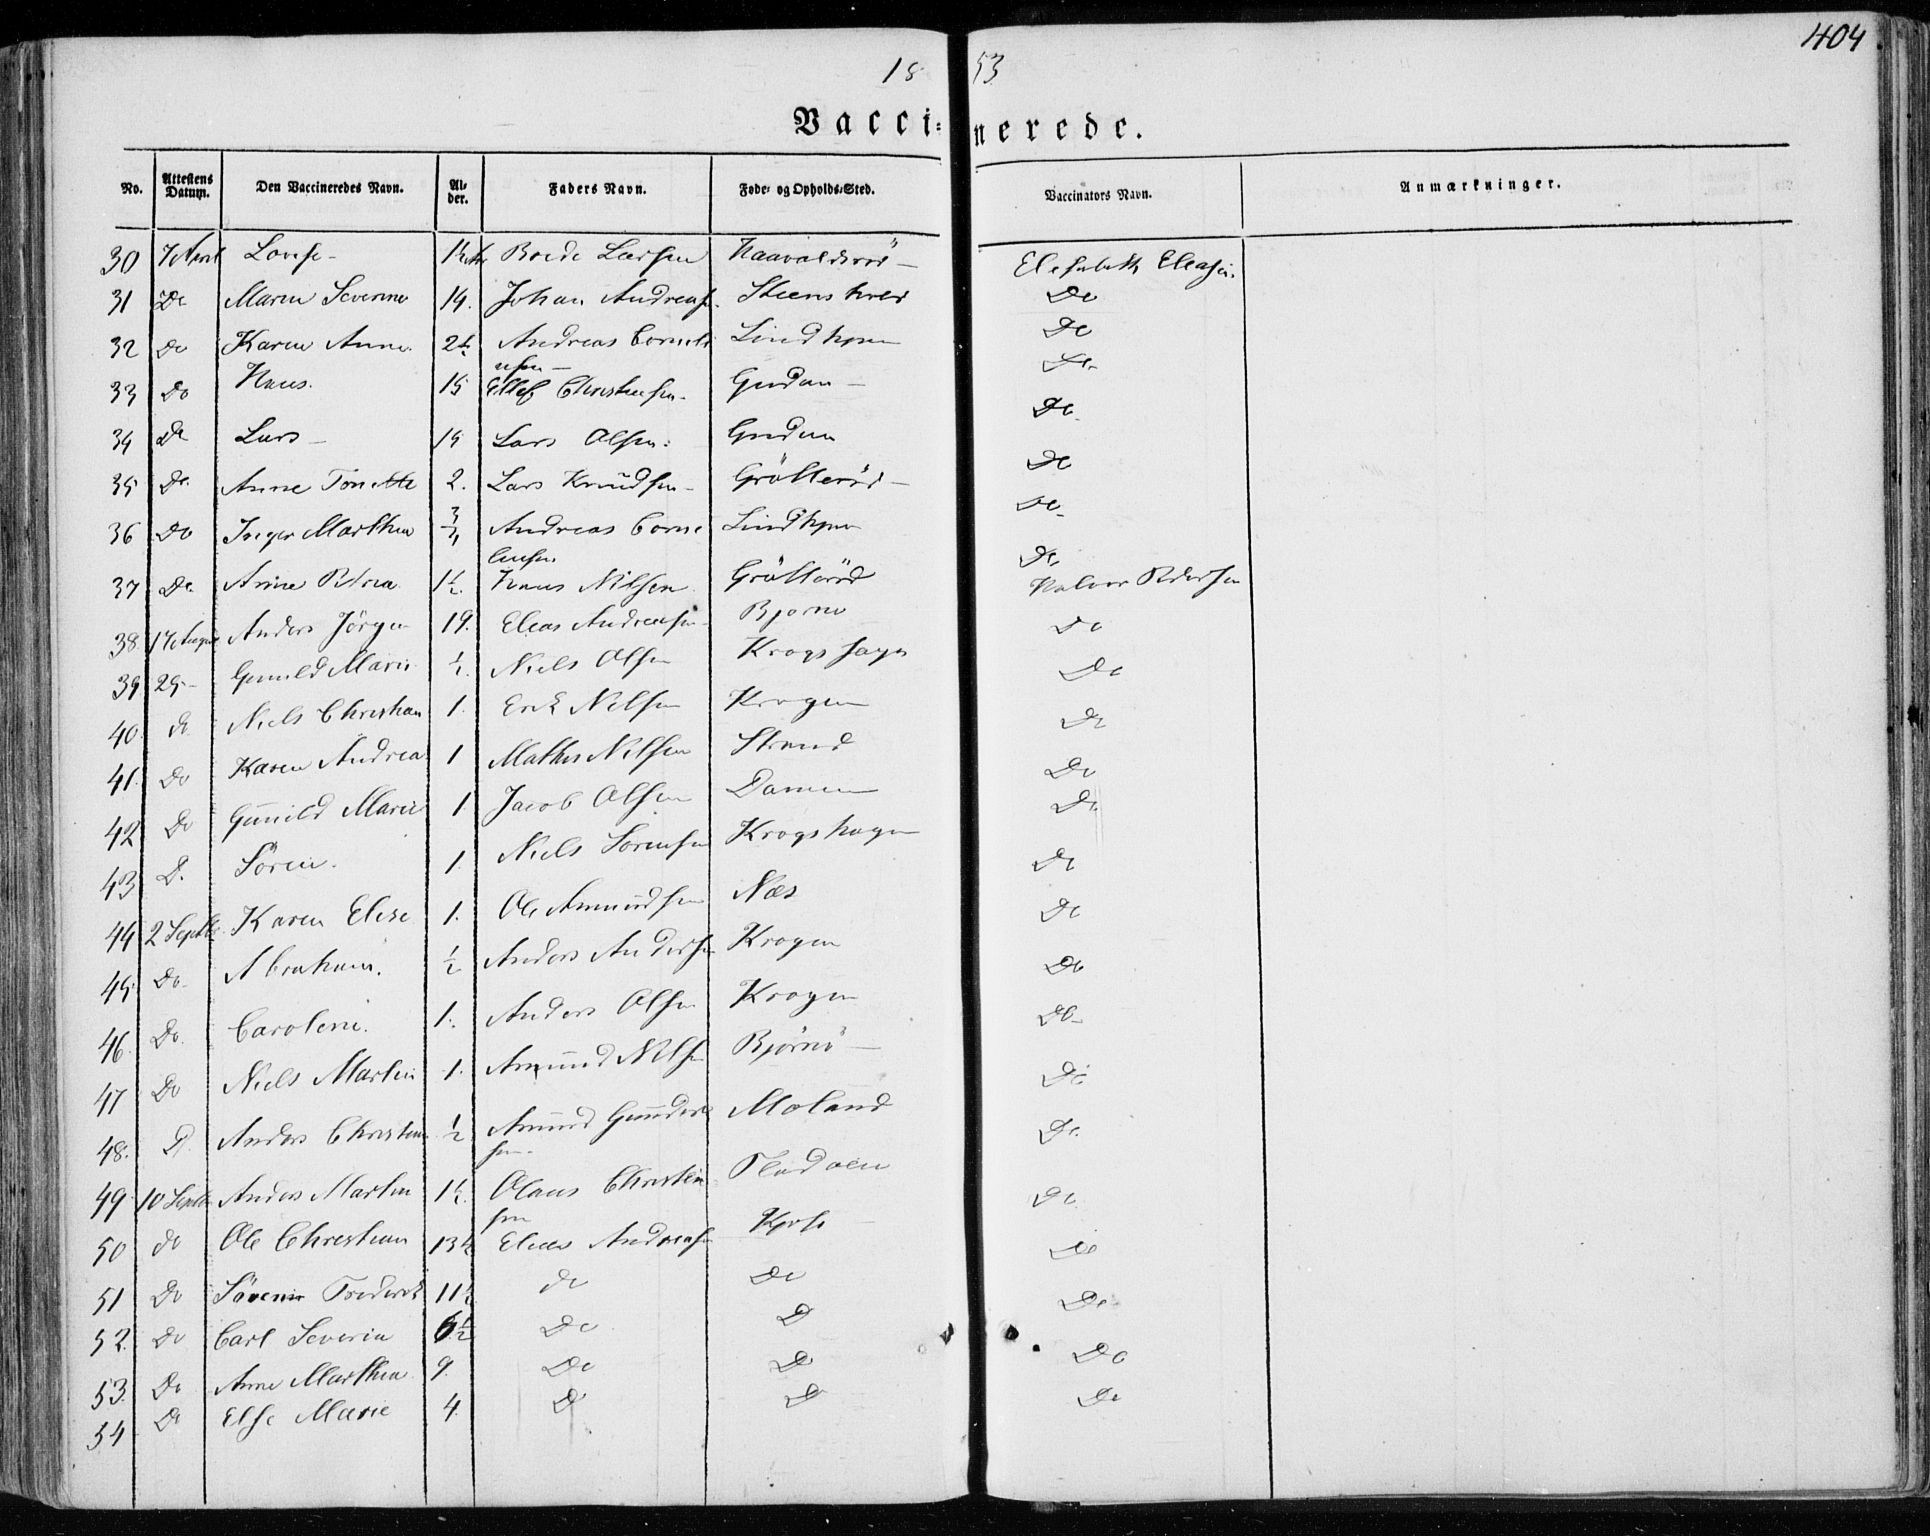 404
18 53
Vacci- nerede.
No. Attestens Datum. Den Vaccineredes Navn. Al- der. Faders Navn. Føde- og Opholds-Sted. Vaccinators Navn. Anmærkninger.
30 7 April Lovise - Boede Larsen
31 Do Maren Severine 14. Johan Andreas. Do
32 Do Karen Anne 2 1/2 Andreas Corneli Lindkjen Do
usen -
33 Do Hans. 15 Ellef Christensen - Gudan - Do
34 Do Lars - 14 Lars Olsen. Gudan Do
35 Do Anne Tonette 2. Lars Knudsen - Grötteröd - Do
36 Do Inger Marthea 3/4 Andreas Corne Lindkjen Do
liusen
37 Do Anne Petrea 1 1/2. Hans Nilsen Grötteröd Do
38. 17 August Anders Jörgen 19. Elias Andreasen Bjørnø Halvor Pedersen
39 29 - Gunild Marie 1/2. Niels Olsen Krogshagen Do
40. do Niels Christian 1. Erik Nilsen Krogen Do
41. Do Karen Andrea 1 Mathis Nilsen Strand Do
42 Do Gunild Marie 1. Jacob Olsen Dammen Do
43 D. Sören. 1. Niels Sörensen Krogshagen Do
44 2 Septbr Karen Elise 1. Ole Amundsen Næs Do
45 Do. Abraham. 1/2 Anders Andersen Krogen Do
46. Do. Caroline. 1. Anders Olsen Krogen Do
47 Do Niels Martin 1. Amund Nilsen Bjørnö - Do
48. D. Anders Christian 1/2 Amund Gunders Moland Do.
sen.
49 10 Septbr Anders Martin 1 1/2. Olaus Christen Do
sen
50 do Ole Christian 13 1/2 Elias Andreasen Do
51 Do Sörenin Frederik 11 1/2 do Do Do
52. Do Carl Severin 6 1/2 Do D Do
53. Do Anne Marthea 9. Do D Do
54 Do Else Marie 4. D D Do